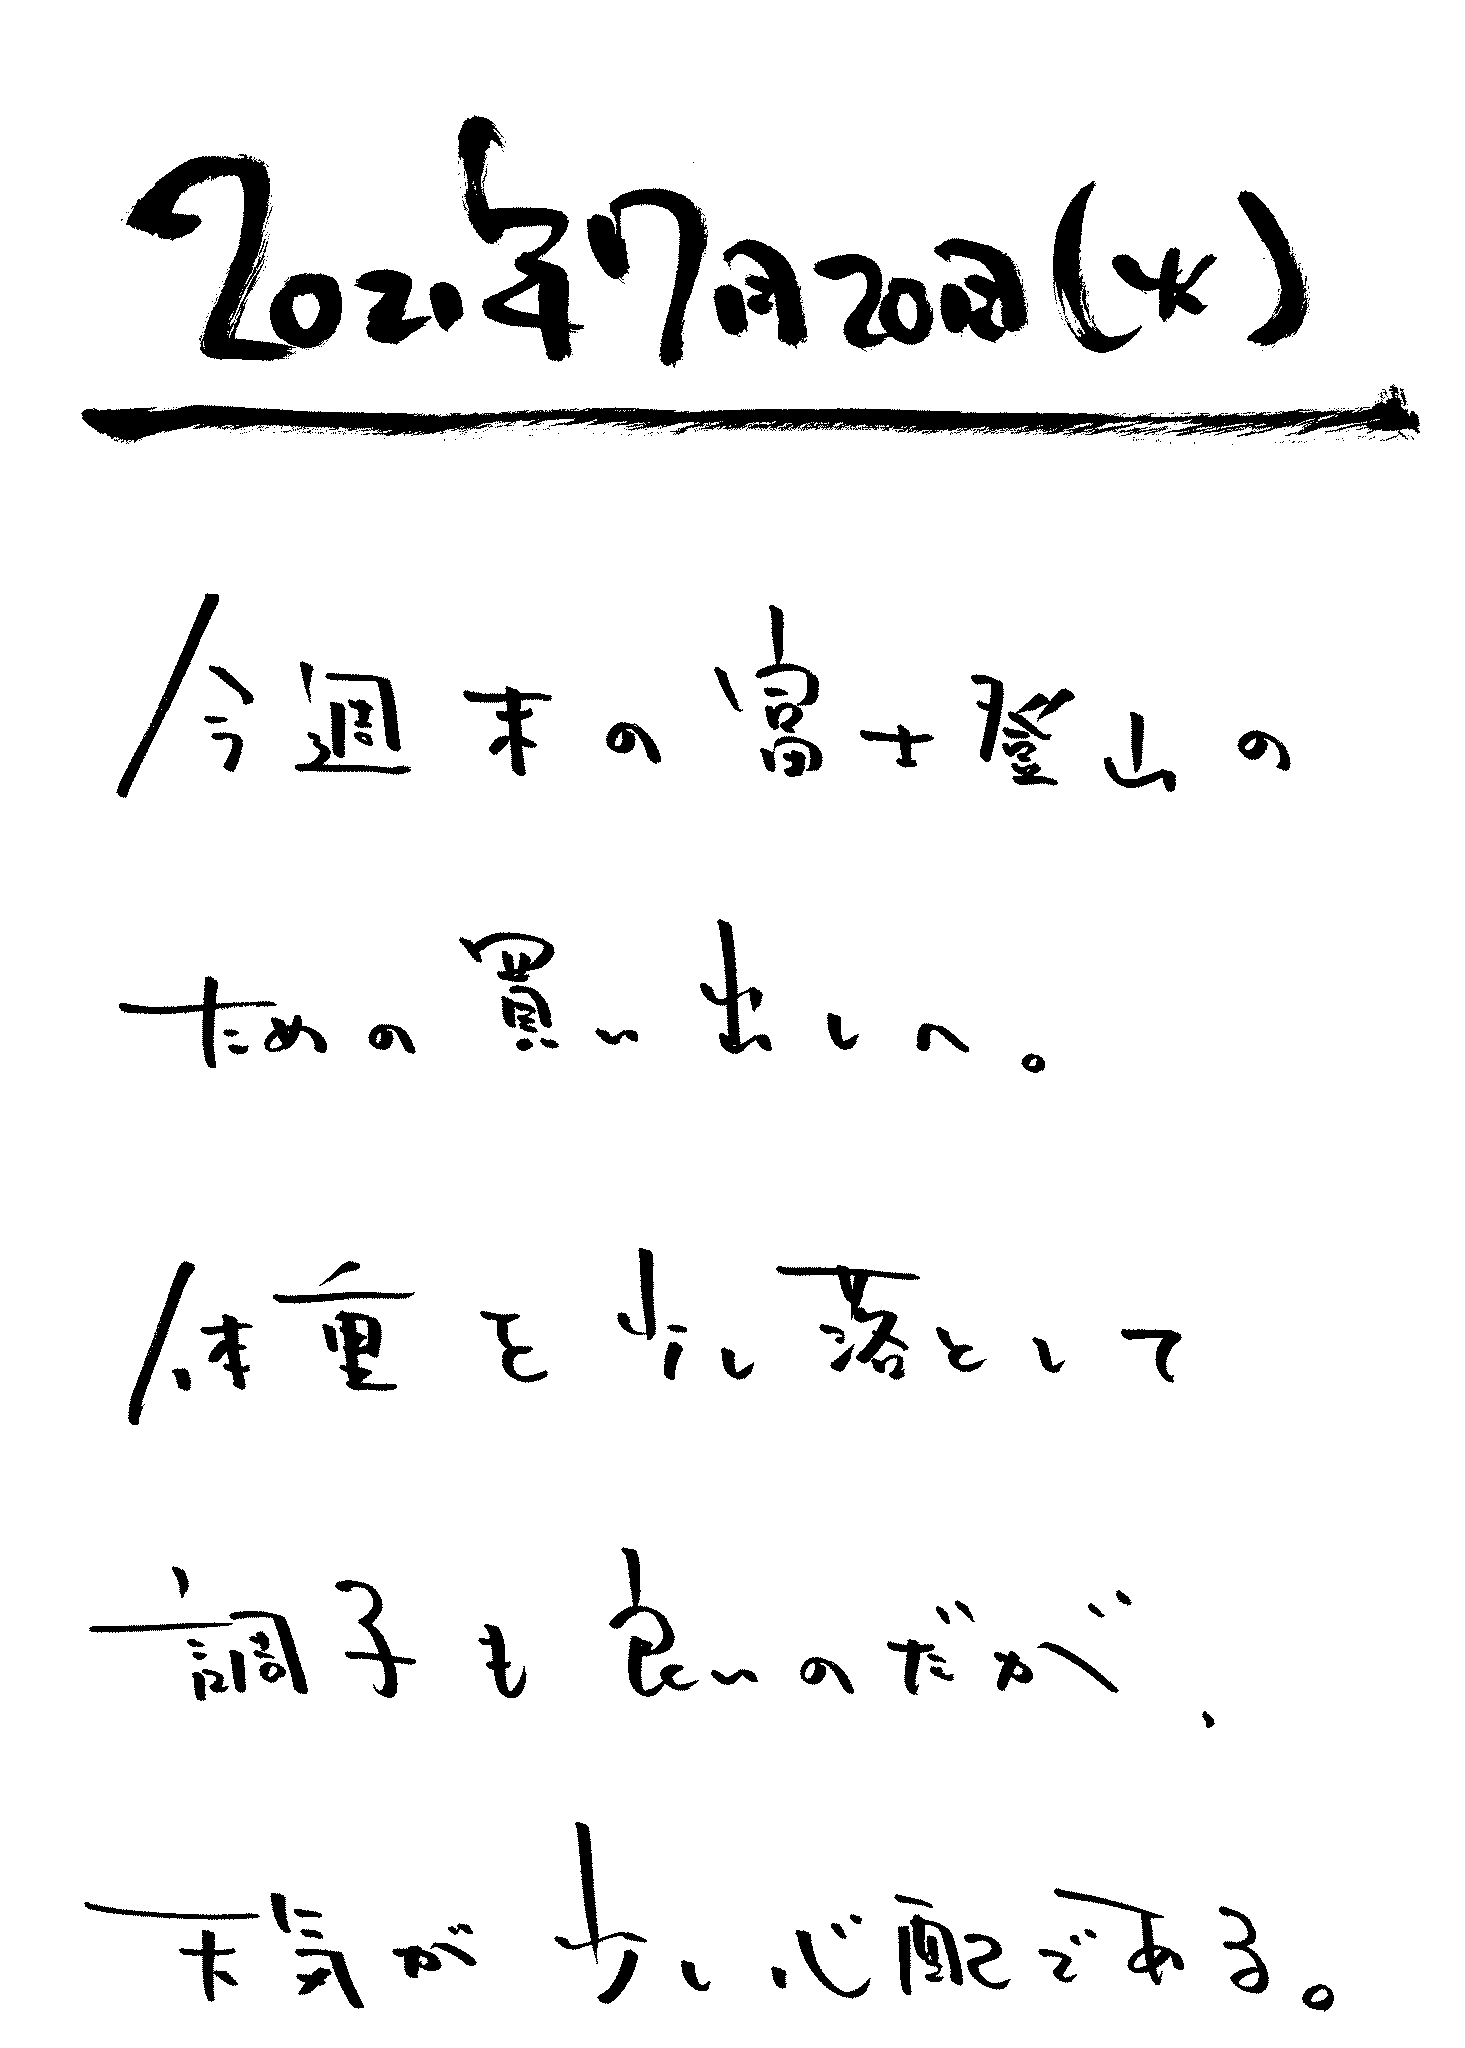 2021年7月20日(火)
今週末の富士登山の
ための買い出しへ。
体重を少し落として
調子も良いのだが、
天気が少し心配である。